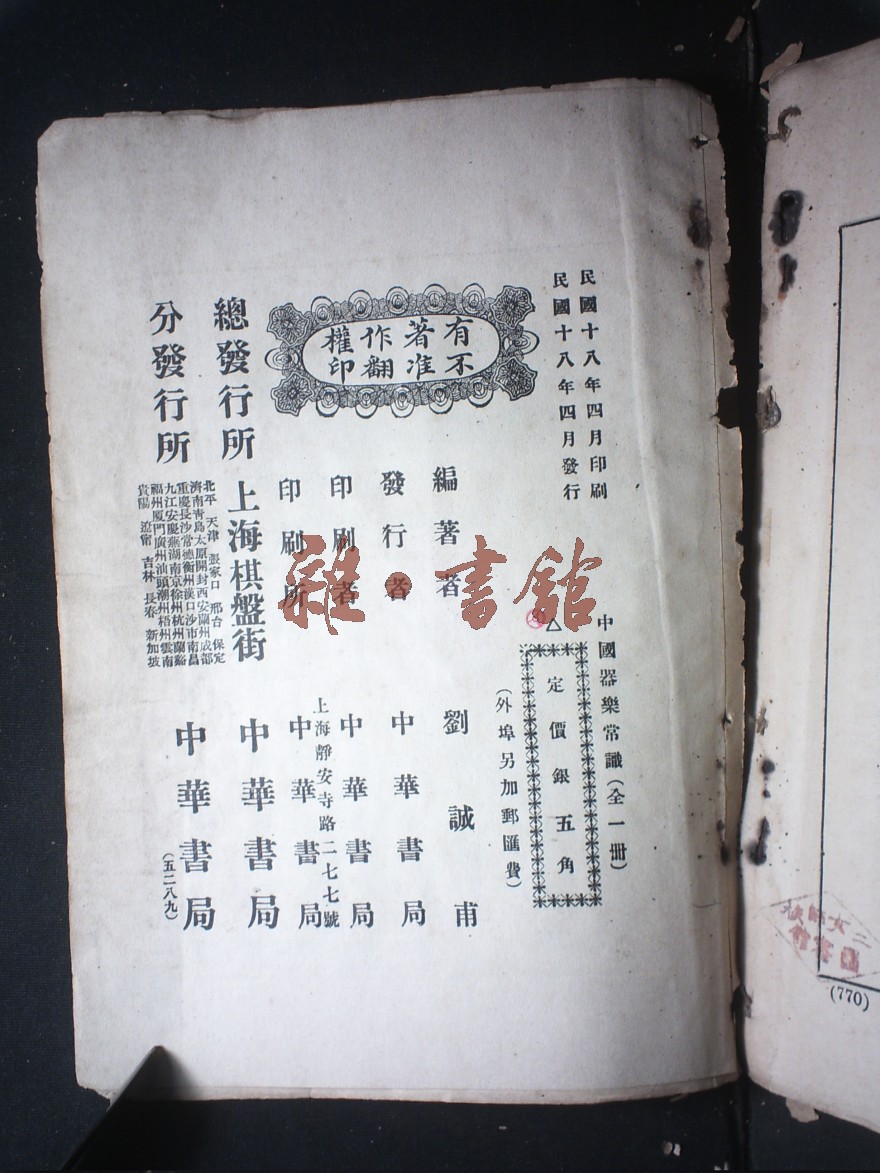 民國十八年四月印刷
民國十八年四月發行
中國器樂常識(全一册)
△
定價銀五角
(外埠另加郵匯費)
有著作權
不准翻印
編著者 劉誠甫
發行者 中華書局
印刷者 中華書局
印刷所 上海靜安寺路二七七號
中華書局
總發行所 上海棋盤街 中華書局
分發行所
北平 天津 張家口 邢台 保定
濟南青島太原開封西安蘭州成都
重慶長沙常德衡州漢口沙市南昌
九江安慶蕪湖南京徐州杭州蘭谿
福州厦門廣州汕頭潮州梧州雲南
貴陽 遼甯 吉林 長春 新加坡
中華書局
(五二八九)
雜·書館
(770)